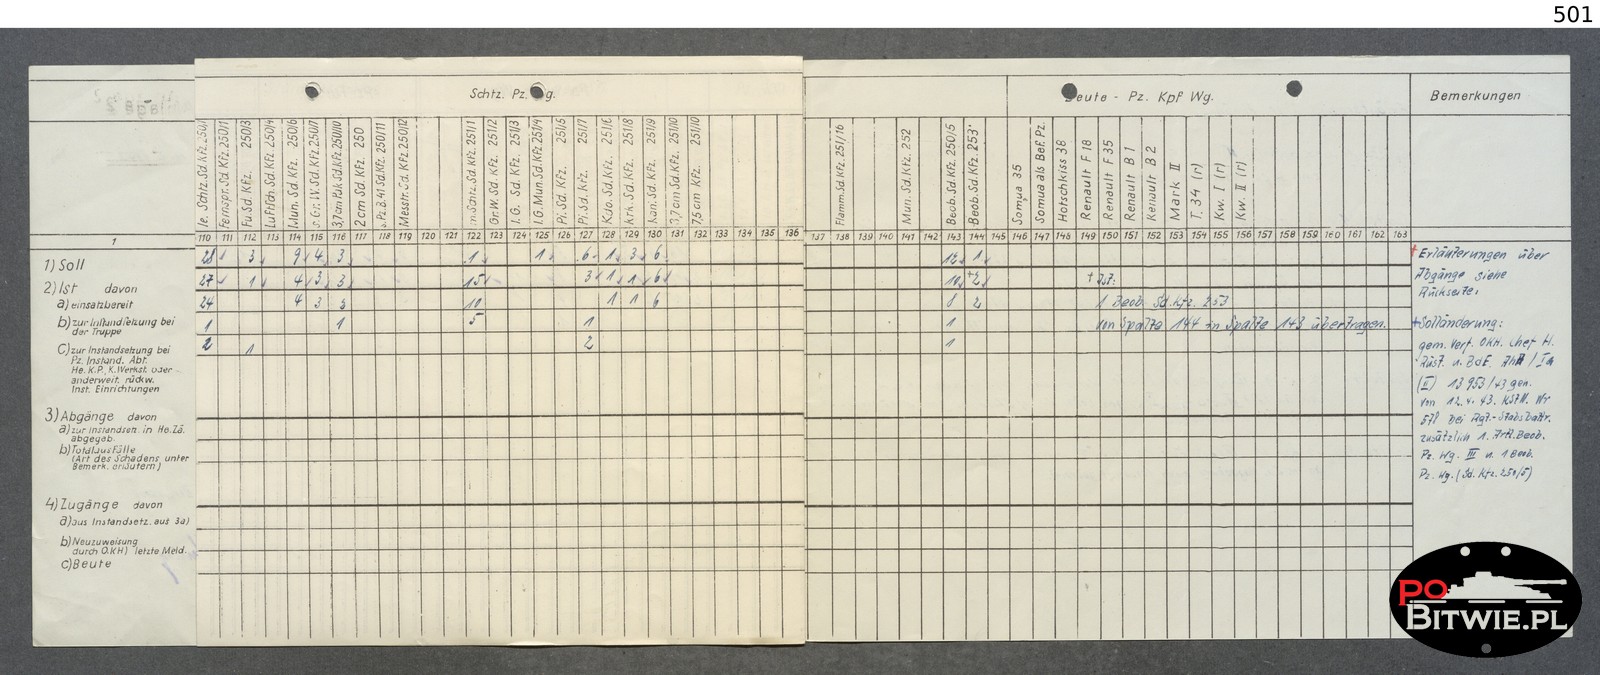 501
Schtz. Pz. Wg.
Beute - Pz. Kpf Wg.
Bemerkungen
le. Schtz. Sd. Kfz. 250/1
Fernspr. Sd. Kfz. 250/1
Fu Sd. Kfz. 250/3
Luftsch. Sd. Kfz. 250/4
Mun. Sd. Kfz. 250/6
s. Gr. W. Sd. Kfz. 250/7
3,7 cm Pak Sd. Kfz. 250/10
2 cm Sd. Kfz. 250
s. Pz. B. 41 Sd. Kfz. 250/11
Messtr. Sd. Kfz. 250/12
m. Schtz. Sd. Kfz. 251/1
Gr. W. Sd. Kfz. 251/2
I. G. Sd. Kfz. 251/3
I. G. Mun. Sd. Kfz. 251/4
Pi. Sd. Kfz. 251/5
Pi. Sd. Kfz. 251/7
Kdo. Sd. Kfz. 251/6
Krk. Sd. Kfz. 251/8
Kan. Sd. Kfz. 251/9
3,7 cm Sd. Kfz. 251/10
7,5 cm Kfz. 251/10
Flamm. Sd. Kfz. 251/16
Mun. Sd. Kfz. 252
Beob. Sd. Kfz. 250/5
Beob. Sd. Kfz. 253
Somua 35
Somua als Bef. Pz.
Hotschkiss 38
Renault F 18
Renault F 35
Renault B 1
Renault B 2
Mark II
T. 34 (r)
Kw. I (r)
Kw. II (r)
1 110 111 112 113 114 115 116 117 118 119 120 121 122 123 124 125 126 127 128 129 130 131 132 133 134 135 136 137 138 139 140 141 142 143 144 145 146 147 148 149 150 151 152 153 154 155 156 157 158 159 160 161 162 163
1) Soll 28 3 9 4 3 1 1 6 1 3 6 12 1
2) Ist davon 27 1 4 3 3 15 3 1 1 6 10 +2 + Ist:
a) einsatzbereit 24 4 3 3 10 1 1 6 8 2 1 Beob. Sd. Kfz. 253
b) zur Instandsetzung bei der Truppe 1 1 5 1 1 von Spalte 144 in Spalte 143 übertragen.
c) zur Instandsetzung bei 2 1 2 1
Pz. Instand. Abt.
He. K.P., K. Werkst. oder
anderweit. rückw.
Inst. Einrichtungen
3) Abgänge davon
a) zur Instandsetz. in He. Zä.
abgegeb.
b) Totalausfälle
(Art des Schadens unter
Bemerk. erläutern)
4) Zugänge davon
a) aus Instandsetz. aus 3a)
b) Neuzuweisung
durch O.K.H) letzte Meld.
c) Beute
+ Erläuterungen über
Abgänge siehe
Rückseite.
+ Solländerung:
gem. Verf. OKH. Chef H.
Rüst. u. BdE. AHA / Ia
(II) 13 953/43 geh.
von 12. 4. 43. KStN. Nr
571 bei Rgt.-Stabsbattr.
zusätzlich 1. Artl. Beob.
Pz. Wg. III u. 1 Beob.
Pz. Wg. (Sd. Kfz. 250/5)
PO
BITWIE.PL